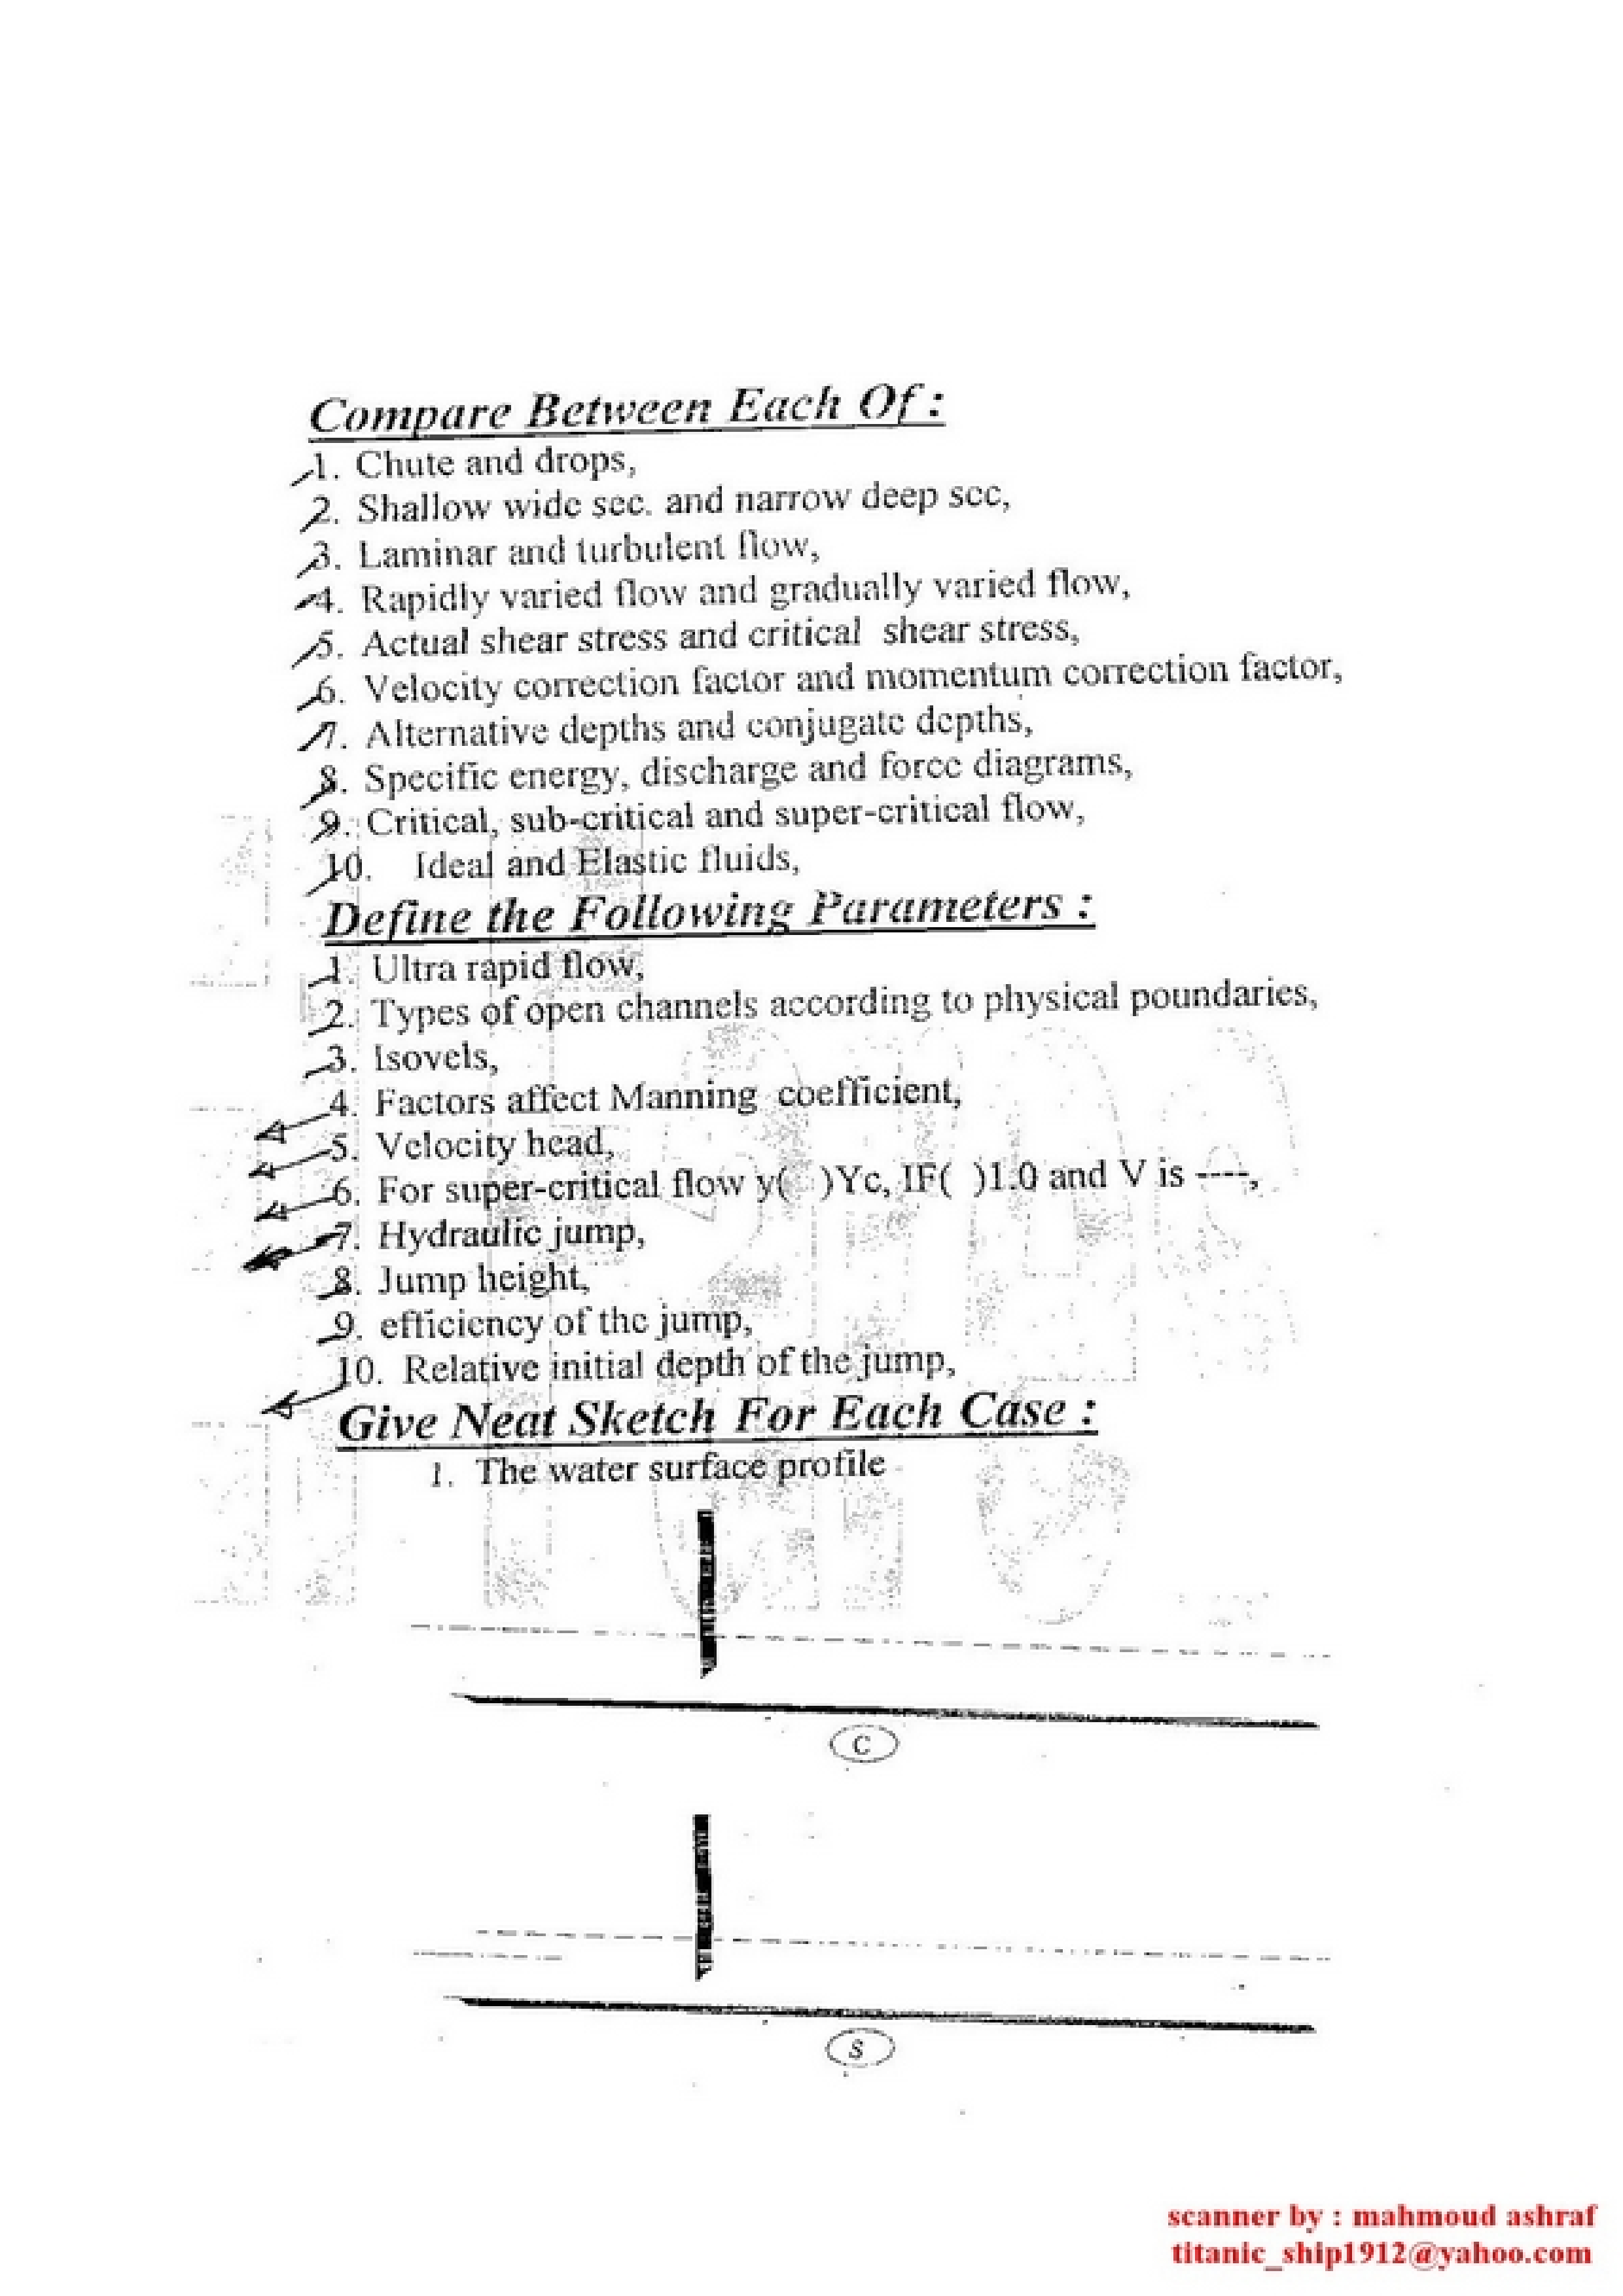 Compare Between Each Of :
1. Chute and drops,
2. Shallow wide sec. and narrow deep sec,
3. Laminar and turbulent flow,
4. Rapidly varied flow and gradually varied flow,
5. Actual shear stress and critical shear stress,
6. Velocity correction factor and momentum correction factor,
7. Alternative depths and conjugate depths,
8. Specific energy, discharge and force diagrams,
9. Critical, sub-critical and super-critical flow,
10. Ideal and Elastic fluids,
Define the Following Parameters :
1. Ultra rapid flow,
2. Types of open channels according to physical poundaries,
3. Isovels,
4. Factors affect Manning coefficient,
5. Velocity head,
6. For super-critical flow y( )Yc, IF( )1.0 and V is ----,
7. Hydraulic jump,
8. Jump height,
9. efficiency of the jump,
10. Relative initial depth of the jump,
Give Neat Sketch For Each Case :
1. The water surface profile
C
S
scanner by : mahmoud ashraf
titanic_ship1912@yahoo.com